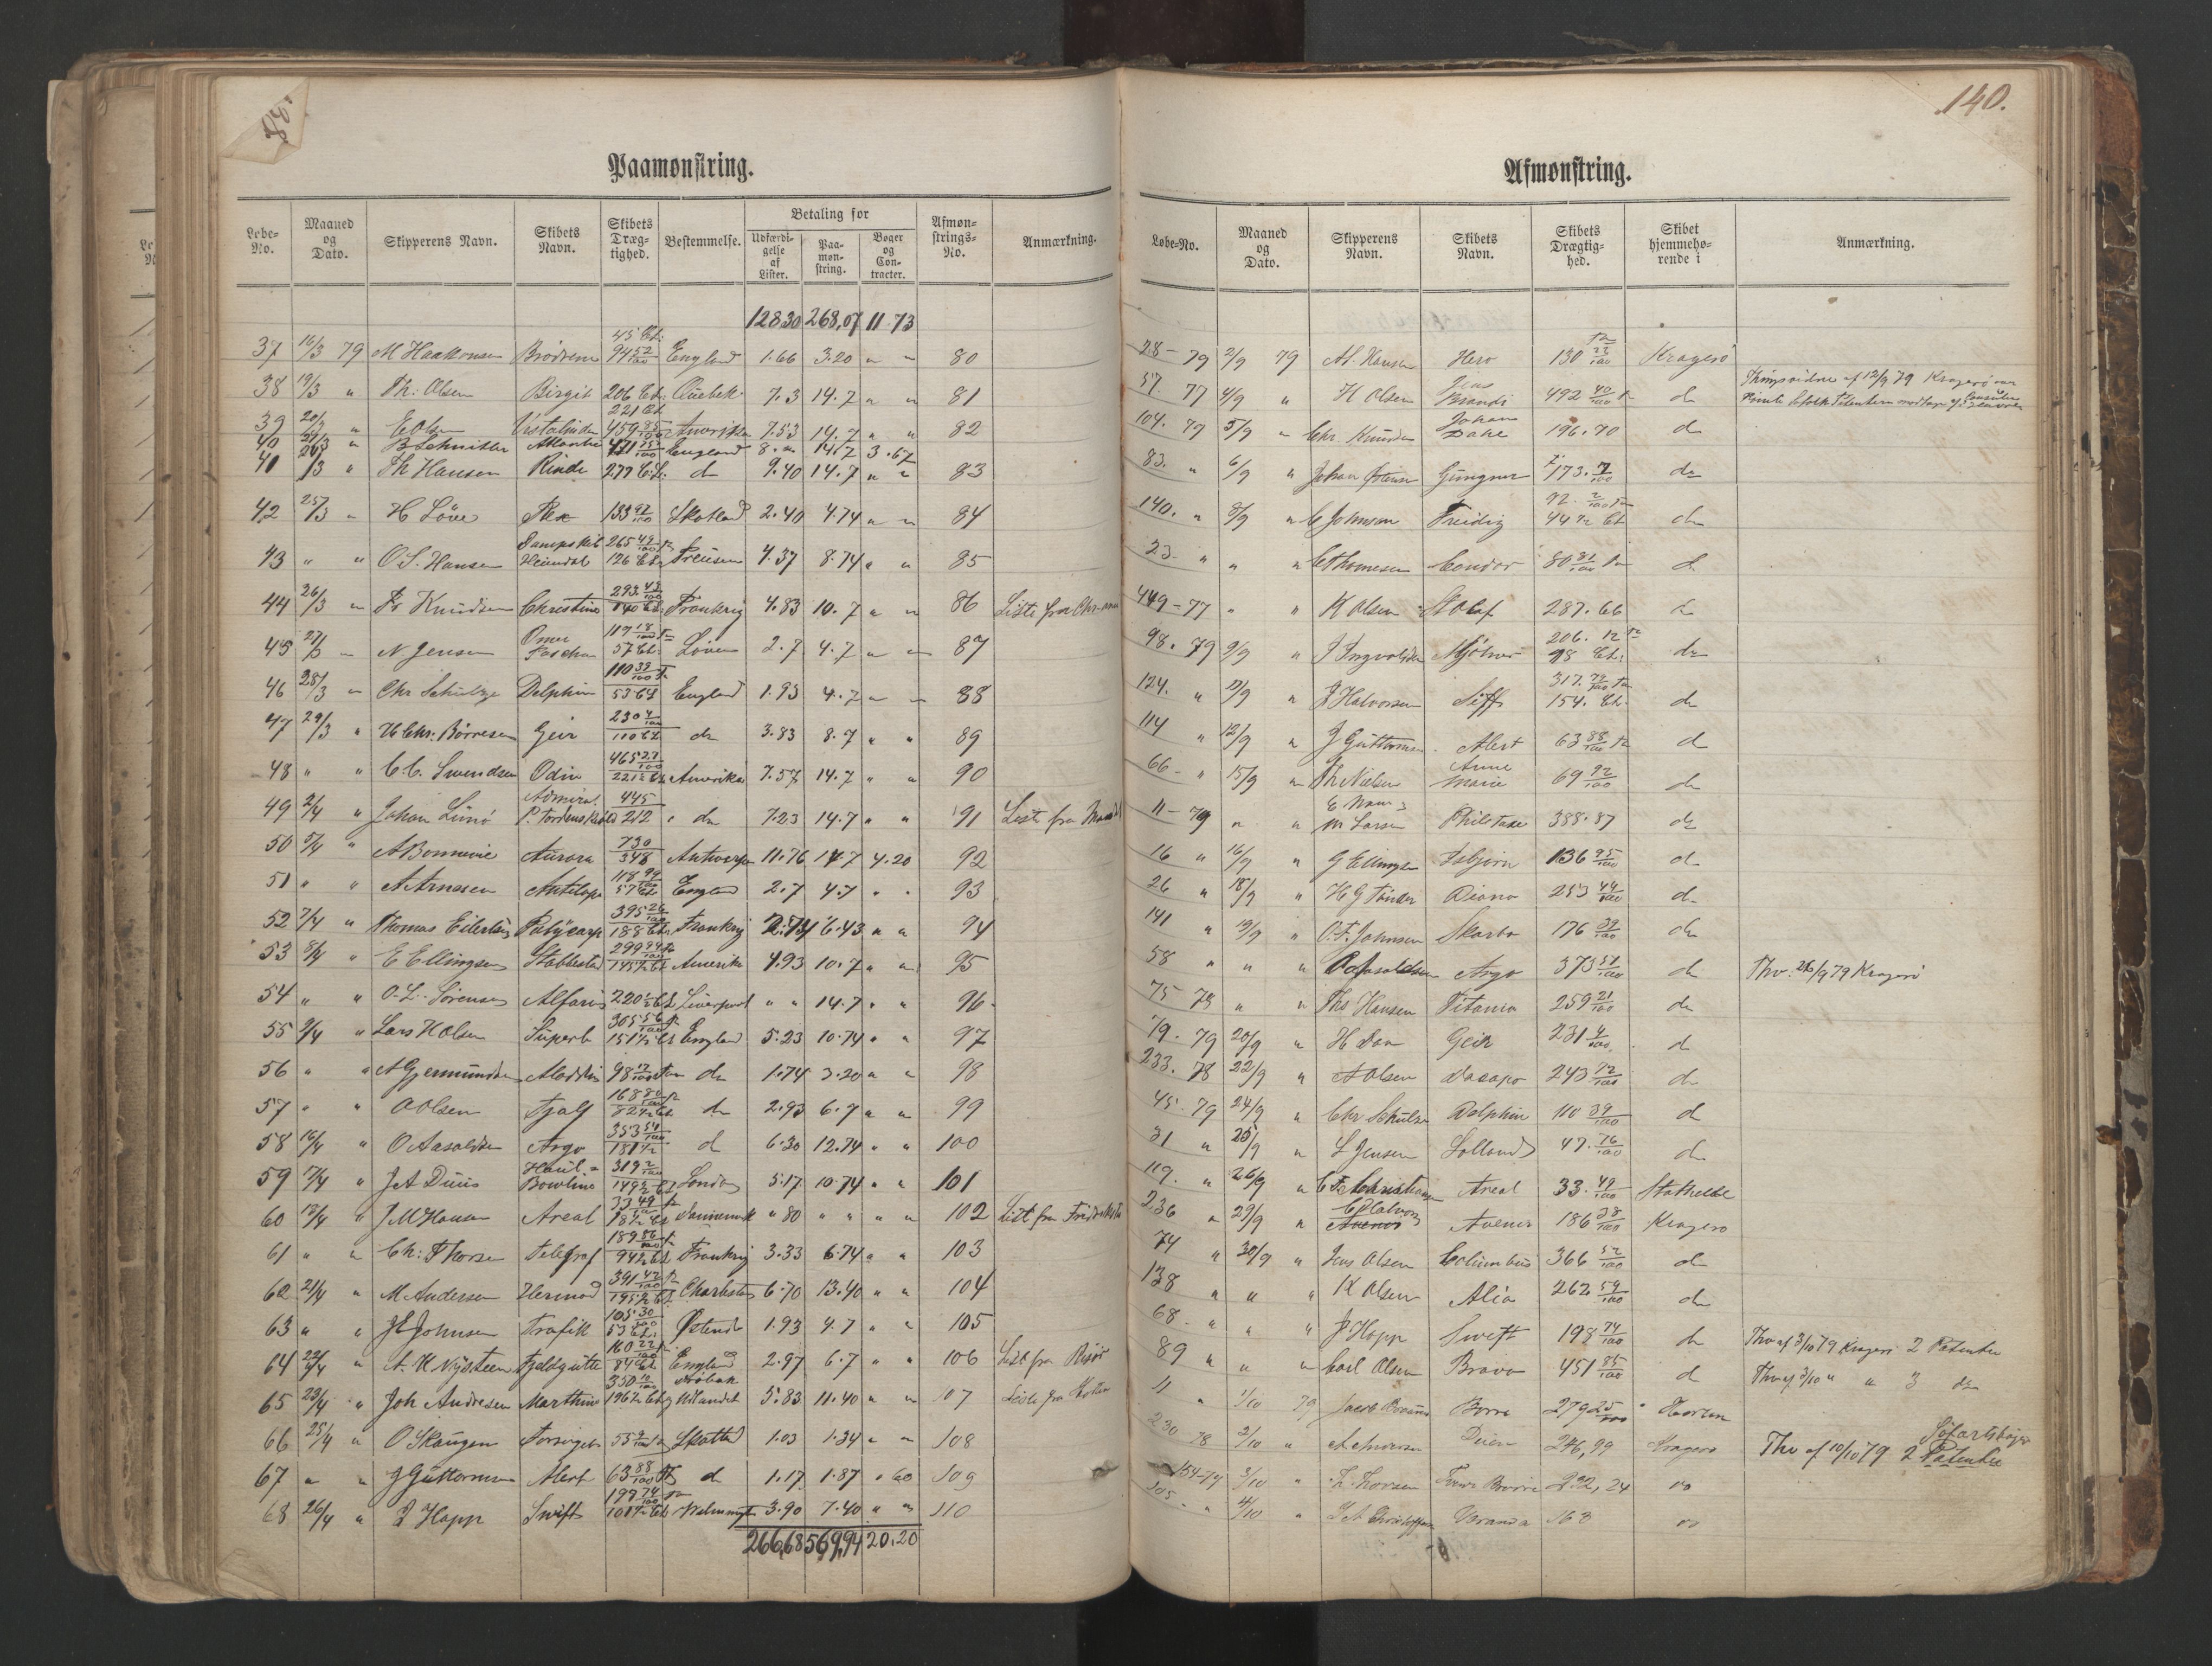 140.
Paamønstring.
Løbe-No. | Maaned og Dato. | Skipperens Navn. | Skibets Navn. | Skibets Dræg-tighed. | Bestemmelse. | Betaling for | Afmøn-strings-No. | Anmærkning.
Udfærdi-gelse af Lister. | Paa-møn-string. | Bøger og Con-tracter.
128.30 268,07 11.73
37 16/3 79 M Haakonsen Brödrene 45 Cl. 94 52/100 England 1.66 3.20 " " 80
38 19/3 " Th: Olsen Birgit 206 Cl. Quebek 7.3 14.7 " " 81
39 20/3 " E Olsen 221 Cl. 459 85/100 Amerika 7.53 14.7 " " 82
40 21/3 " B Schnitler Atlantic 471 England 8. " 14.7 3.67
41 /3 " Th Hansen Rinde 277 Cl. do 9.40 14.7 " " 83
42 25/3 " H Löve Rex 133 92/100 Skotland 2.40 4.74 " " 84
43 " " O. S. Hansen Dampskib Heimdal 265 49/100 126 Cl. Preusen 4.37 8.74 " " 85
44 26/3 " Fr Knudsen Christine 293 43/100 140 Cl. Frankrig 4.83 10.7 " " 86 Liste fra
45 27/3 " N Jensen Omer Pascha 119 18/100 57 Cl. 2.7 4.7 " " 87
46 28/3 " Chr Schultze Delphin 110 39/100 53 Cl England 1.93 4.7 " " 88
47 29/3 " H Chr. Börresen Geir 230 4/100 110 Cl do 3.83 8.7 " " 89
48 " " C. C. Svendsen Odin 465 27/100 221½ Cl Amerika 7.57 14.7 " " 90
49 2/4 " Johan Lunö Admiral P. Tordenskiold 445 212 do 7.23 14.7 " " 91 Liste fra
50 5/4 " A Bonnevie Aurora 730 348 Antwerpen 11.76 14.7 4.20 92
51 " " A Arnesen Antilope 118 94/100 57 Cl. England 2.7 4.7 " " 93
52 7/4 " Thomas Eilertsen Policarp 395 26/100 188 Cl. Frankrig 2.74 6.43 " " 94
53 8/4 " E Ellingsen Stabbestad 299 94/100 145½ Cl Amerika 4.93 10.7 " " 95
54 " " O. L. Sörensen Alfarin 220½ Cl Liverpool " " 14.7 " " 96
55 9/4 " Lars H Olsen Superb 305 56/100 151½ Cl England 5.23 10.74 " " 97
56 " " A Gjermundsen Aladdin 98 12/100 ton do 1.74 3.20 " " 98
57 " " O Olsen Fjalf 168 80/100 82½ Cl do 2.93 6.7 " " 99
58 16/4 " O Aasoldsen Argo 353 54/100 181½ d 6.30 12.74 " " 100
59 17/4 " J A Duus Haul-Bowline 319 2/100 149½ Cl London 5.17 10.74 " " 101
60 18/4 " J M Hansen Areal 33 49/100 18½ Cl Dannemark " 80 " " " " 102 List fra Fridrikstad
61 " " Ch: Thorsen Telegraf 189 86/100 94½ Cl Frankrig 3.33 6.74 " " 103
62 21/4 " M Andersen Hermod 391 42/100 195½ Cl. Charleston 6.70 13.40 " " 104
63 " " J E Johnsen Trafik 105 30/100 53 Cl. Ostende 1.93 4.7 " " 105
64 22/4 " A. K Nysteen Fjeldgutten 160 22/100 84 Cl. England 2.97 6.7 " " 106 List fra Risör
65 23/4 " Joh Andresen Marthine 350 10/100 196½ Cl Dröbak og Udlandet 5.83 11.40 " " 107 Liste fra Horten
66 25/4 " O Skougen Forsöget 55 9/100 Skotland 1.03 1.34 " " 108
67 " " J Guttormsen Alert 63 88/100 d 1.17 1.87 " 60 109
68 26/4 " J Hopp Swift 198 74/100 101½ Cl 3.90 7.40 " " 110
266,68 569,94 20.20
Afmønstring.
Løbe-No. | Maaned og Dato. | Skipperens Navn. | Skibets Navn. | Skibets Drægtig-hed. | Skibet hjemmehø-rende i | Anmærkning.
28 - 79 2/9 79 Al. Hansen Hero 130 22/100 Kragerö
57. 77 4/9 " H Olsen Jens Brandi 492 40/100 d Thingsvidne af 12/9 79 Kragerö
104. 79 5/9 " Chr Knudsen Johan 196.70 d
83. " 6/9 " Johan Gungner 173. 7/100 do
140. " 8/9 " C Johnsen Freidig 92. 2/100 44½ Cl. do
23 " " " C Thomesen Condor 80 81/100 d
449 - 77 " " K Olsen St Olaf 287.66 d
98. 79 9/9 " J Ingvoldsen Mjölner 206.12 98 Cl. do
124. " 12/9 " J Halvorsen Siff 317. 72/100 154. Cl. do
114 " 12/9 " J Guttormsen Alert 63 88/100 d
66 - " 15/9 " Th Nielsen Anne Marie 69 92/100 do
11 - 79 " " M Larsen Philetare 388.87 do
16 " 16/9 " G Ellingsen Isbjörn 136 95/100 d.
26 " 18/9 " H G Diana 253 44/100 d.
141 " 19/9 " O. F. Johnsen Skarbo 176 39/100 do
58 " " " O Aasoldsen Argo 373 51/100 do Thv. 26/9 79 Kragerö
75 78 " " Ths Hansen Titania 259 21/100 do
79. 79 20/9 " H Dan Geir 231 4/100 d
233. 78 22/9 " A Olsen Dacapo 243 12/100 d
45. 79 24/9 " Chr Schulze Delphin 110 39/100 d
31 " 25/9 " L Jensen Lolland 47. 76/100 d.
119. " 26/9 " C F Christiansen Areal 33. 49/100 Stathelle
236 " 29/9 " C Halvorsen Avenir 186 38/100 Kragerö
74 " 30/9 " Jens Olsen Columbus 366 52/100 do
138 " " " K Olsen Alia 262 59/100 do
68 " " " J Hopp Swift 198 74/100 do Thv af 3/10 79 Kragerö 2 Patenter
89 " " " Carl Olsen Bravo 451 85/100 d Thv af 3/10 " " 3 do
11 " 1/10 79 Jacob Borre 279 25/100 Horten
230 78 2/10 " A Andersen 246,99 Kragerö Thv af 10/10 79 Söfartsböger 2 Patenter
154-79 3/10 " L. Thorsen 232,24 do
105 " 4/10 " J A Christoffersen Veranda 163 do